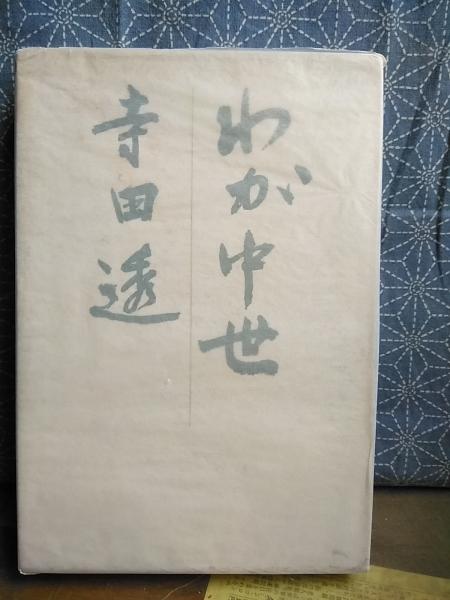 わが中世
寺田透